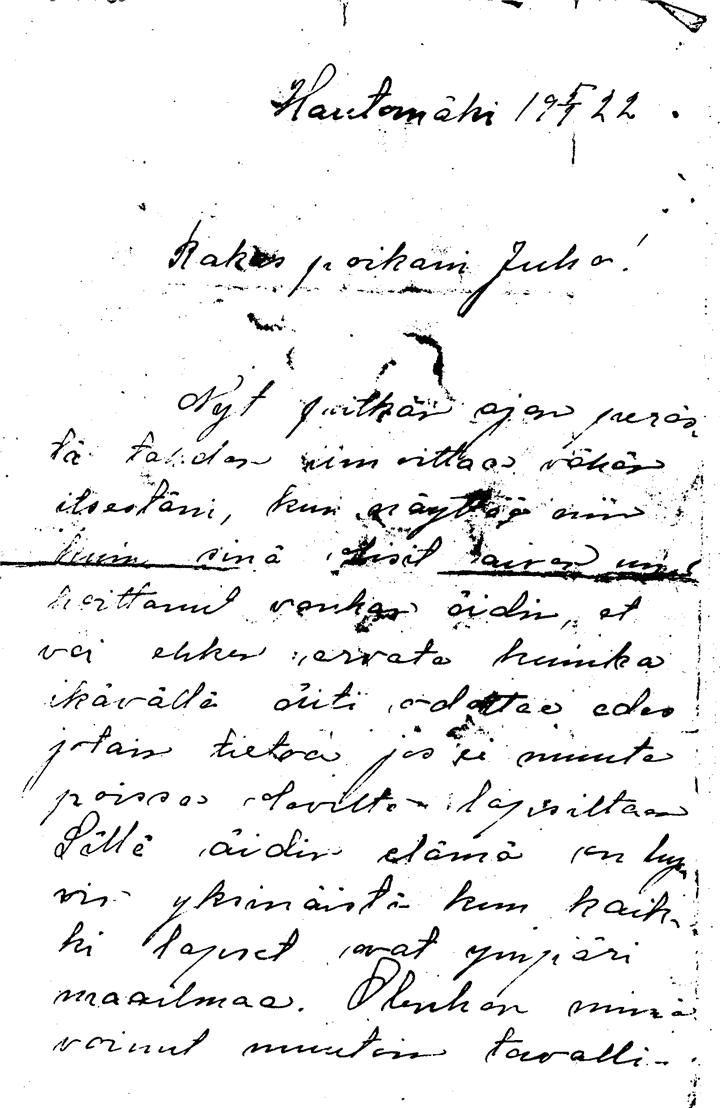 Hautomäki 19 5/9 22.
Rakas poikani Juho!
Nyt pitkän ajan peräs-
tä tahdon ilmoittaa vähän
itsestäni, kun näyttää niin
kuin sinä olisit aivan unu
hoittanut vanhan äidin, et
voi ehken arvata kuinka
ikävällä äiti odottaa edes
jotain tietoa jos ei muuta
poissa olevilta lapsiltaan
Sillä äidin elämä on hy
vin yksinäistä kun kaik-
ki lapset ovat ympäri
maailmaa. Olenhan minä
voinut muuten tavalli-